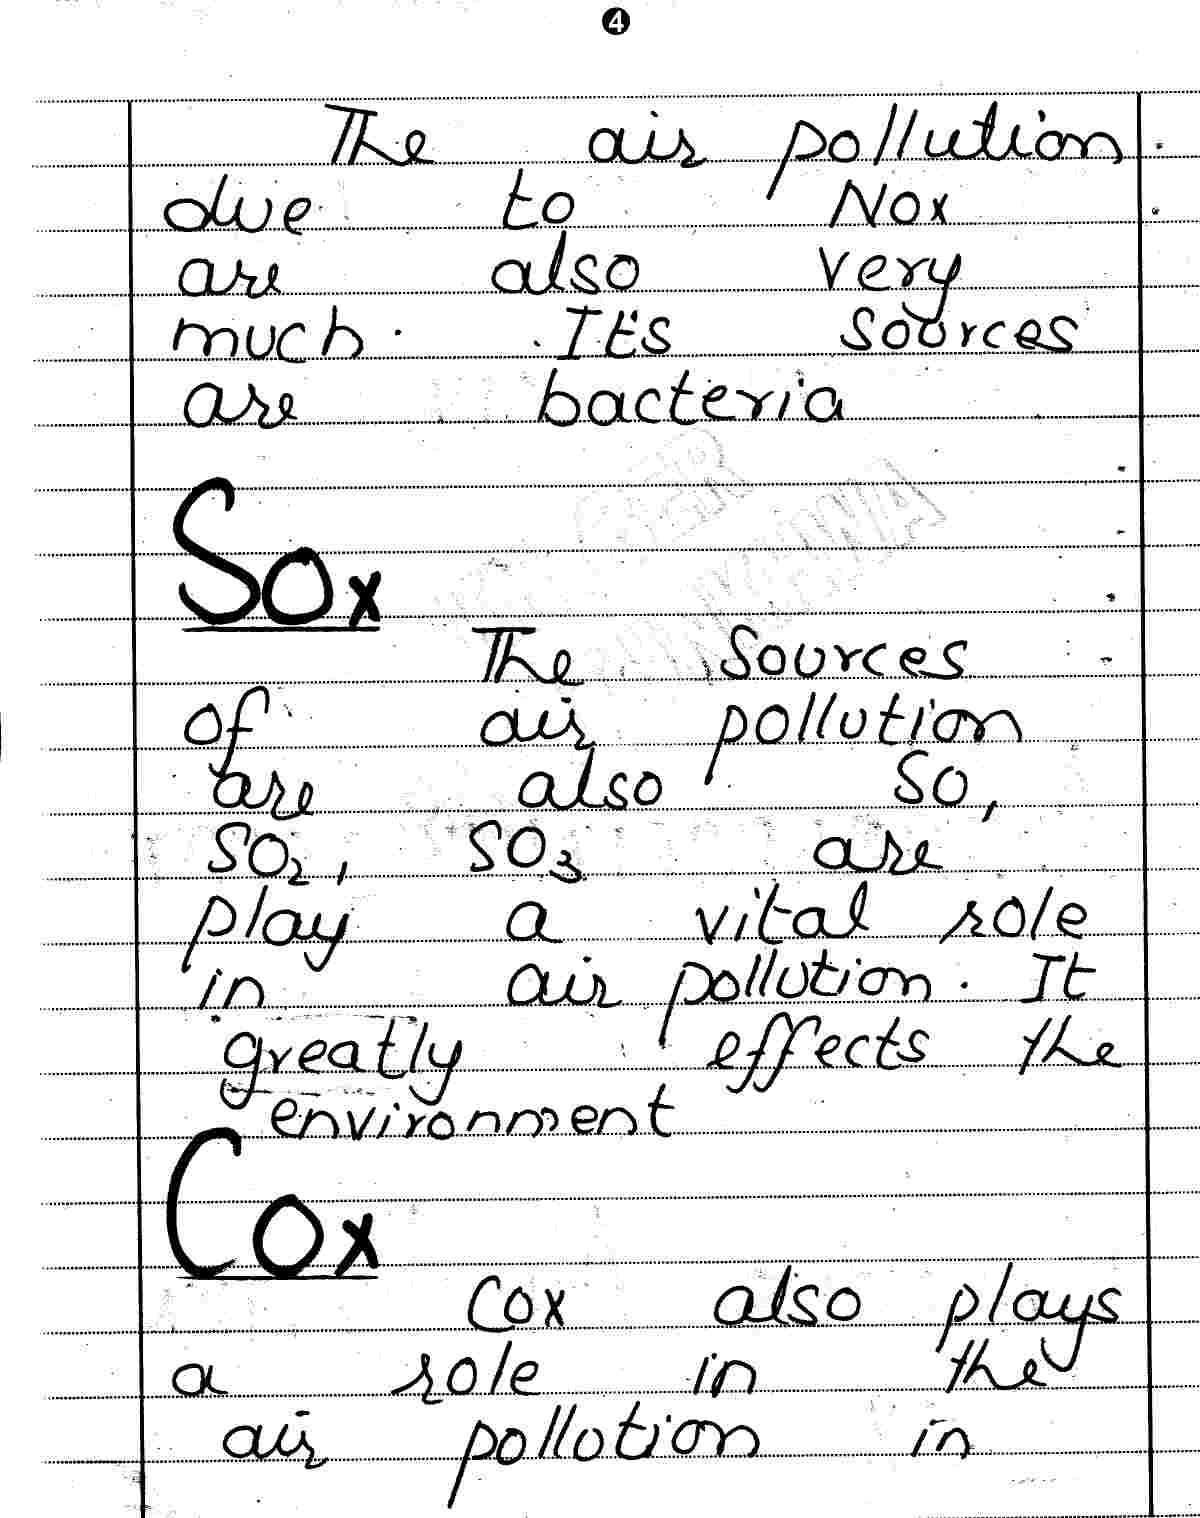 4
The air pollution
due to NOx
are also very
much. It's sources
are bacteria
SOx
The Sources
of air pollution
are also SO,
SO₂, SO₃ are
play a vital role
in air pollution. It
greatly effects the
environment
COx
COx also plays
a role in the
air pollution in